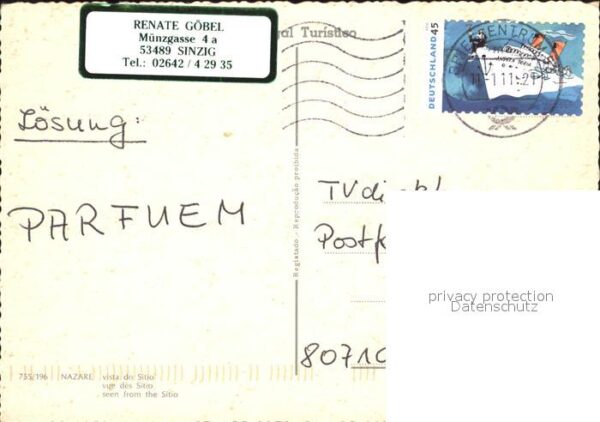 RENATE GÖBEL
Münzgasse 4 a
53489 SINZIG
Tel.: 02642 / 4 29 35
Turístico
DEUTSCHLAND 45
Lösung:
PARFUEM
Registado - Reprodução proibida
TVdi
Postf
privacy protection
Datenschutz
80710
755/196 NAZARÉ: vista do Sítio
vue des Sítio
seen from the Sítio